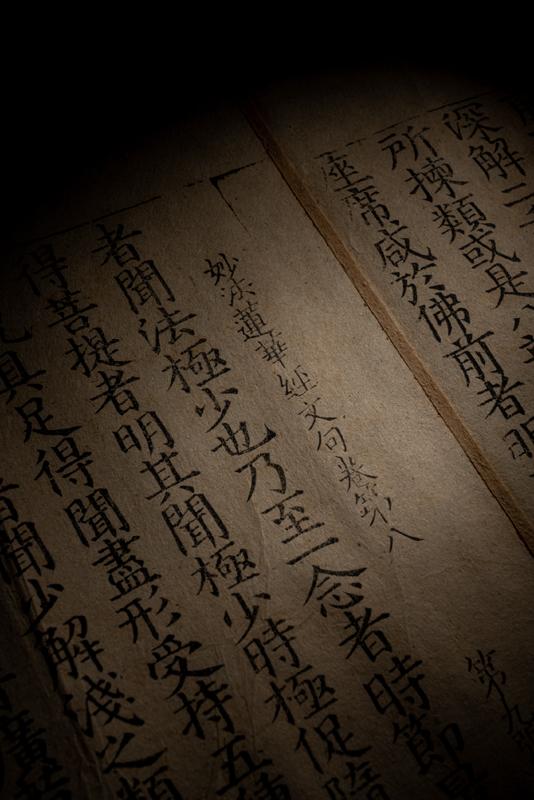 深解二
所揀類或是八
座席咸於佛前者明
第九
妙法蓮華經文句卷第八
者聞法極少也乃至一念者時節
得菩提者明其聞極少時極促隨
具足得聞盡形受持五
聞少解淺之類
廣